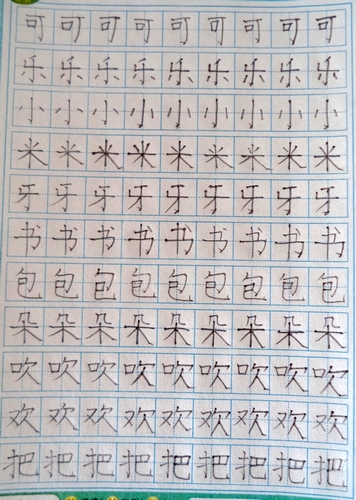 可可可可可可可可可
乐乐乐乐乐乐乐乐乐
小小小小小小小小小
米米米米米米米米米
牙牙牙牙牙牙牙牙牙
书书书书书书书书书
包包包包包包包包包
朵朵朵朵朵朵朵朵朵
吹吹吹吹吹吹吹吹吹
欢欢欢欢欢欢欢欢欢
把把把把把把把把把